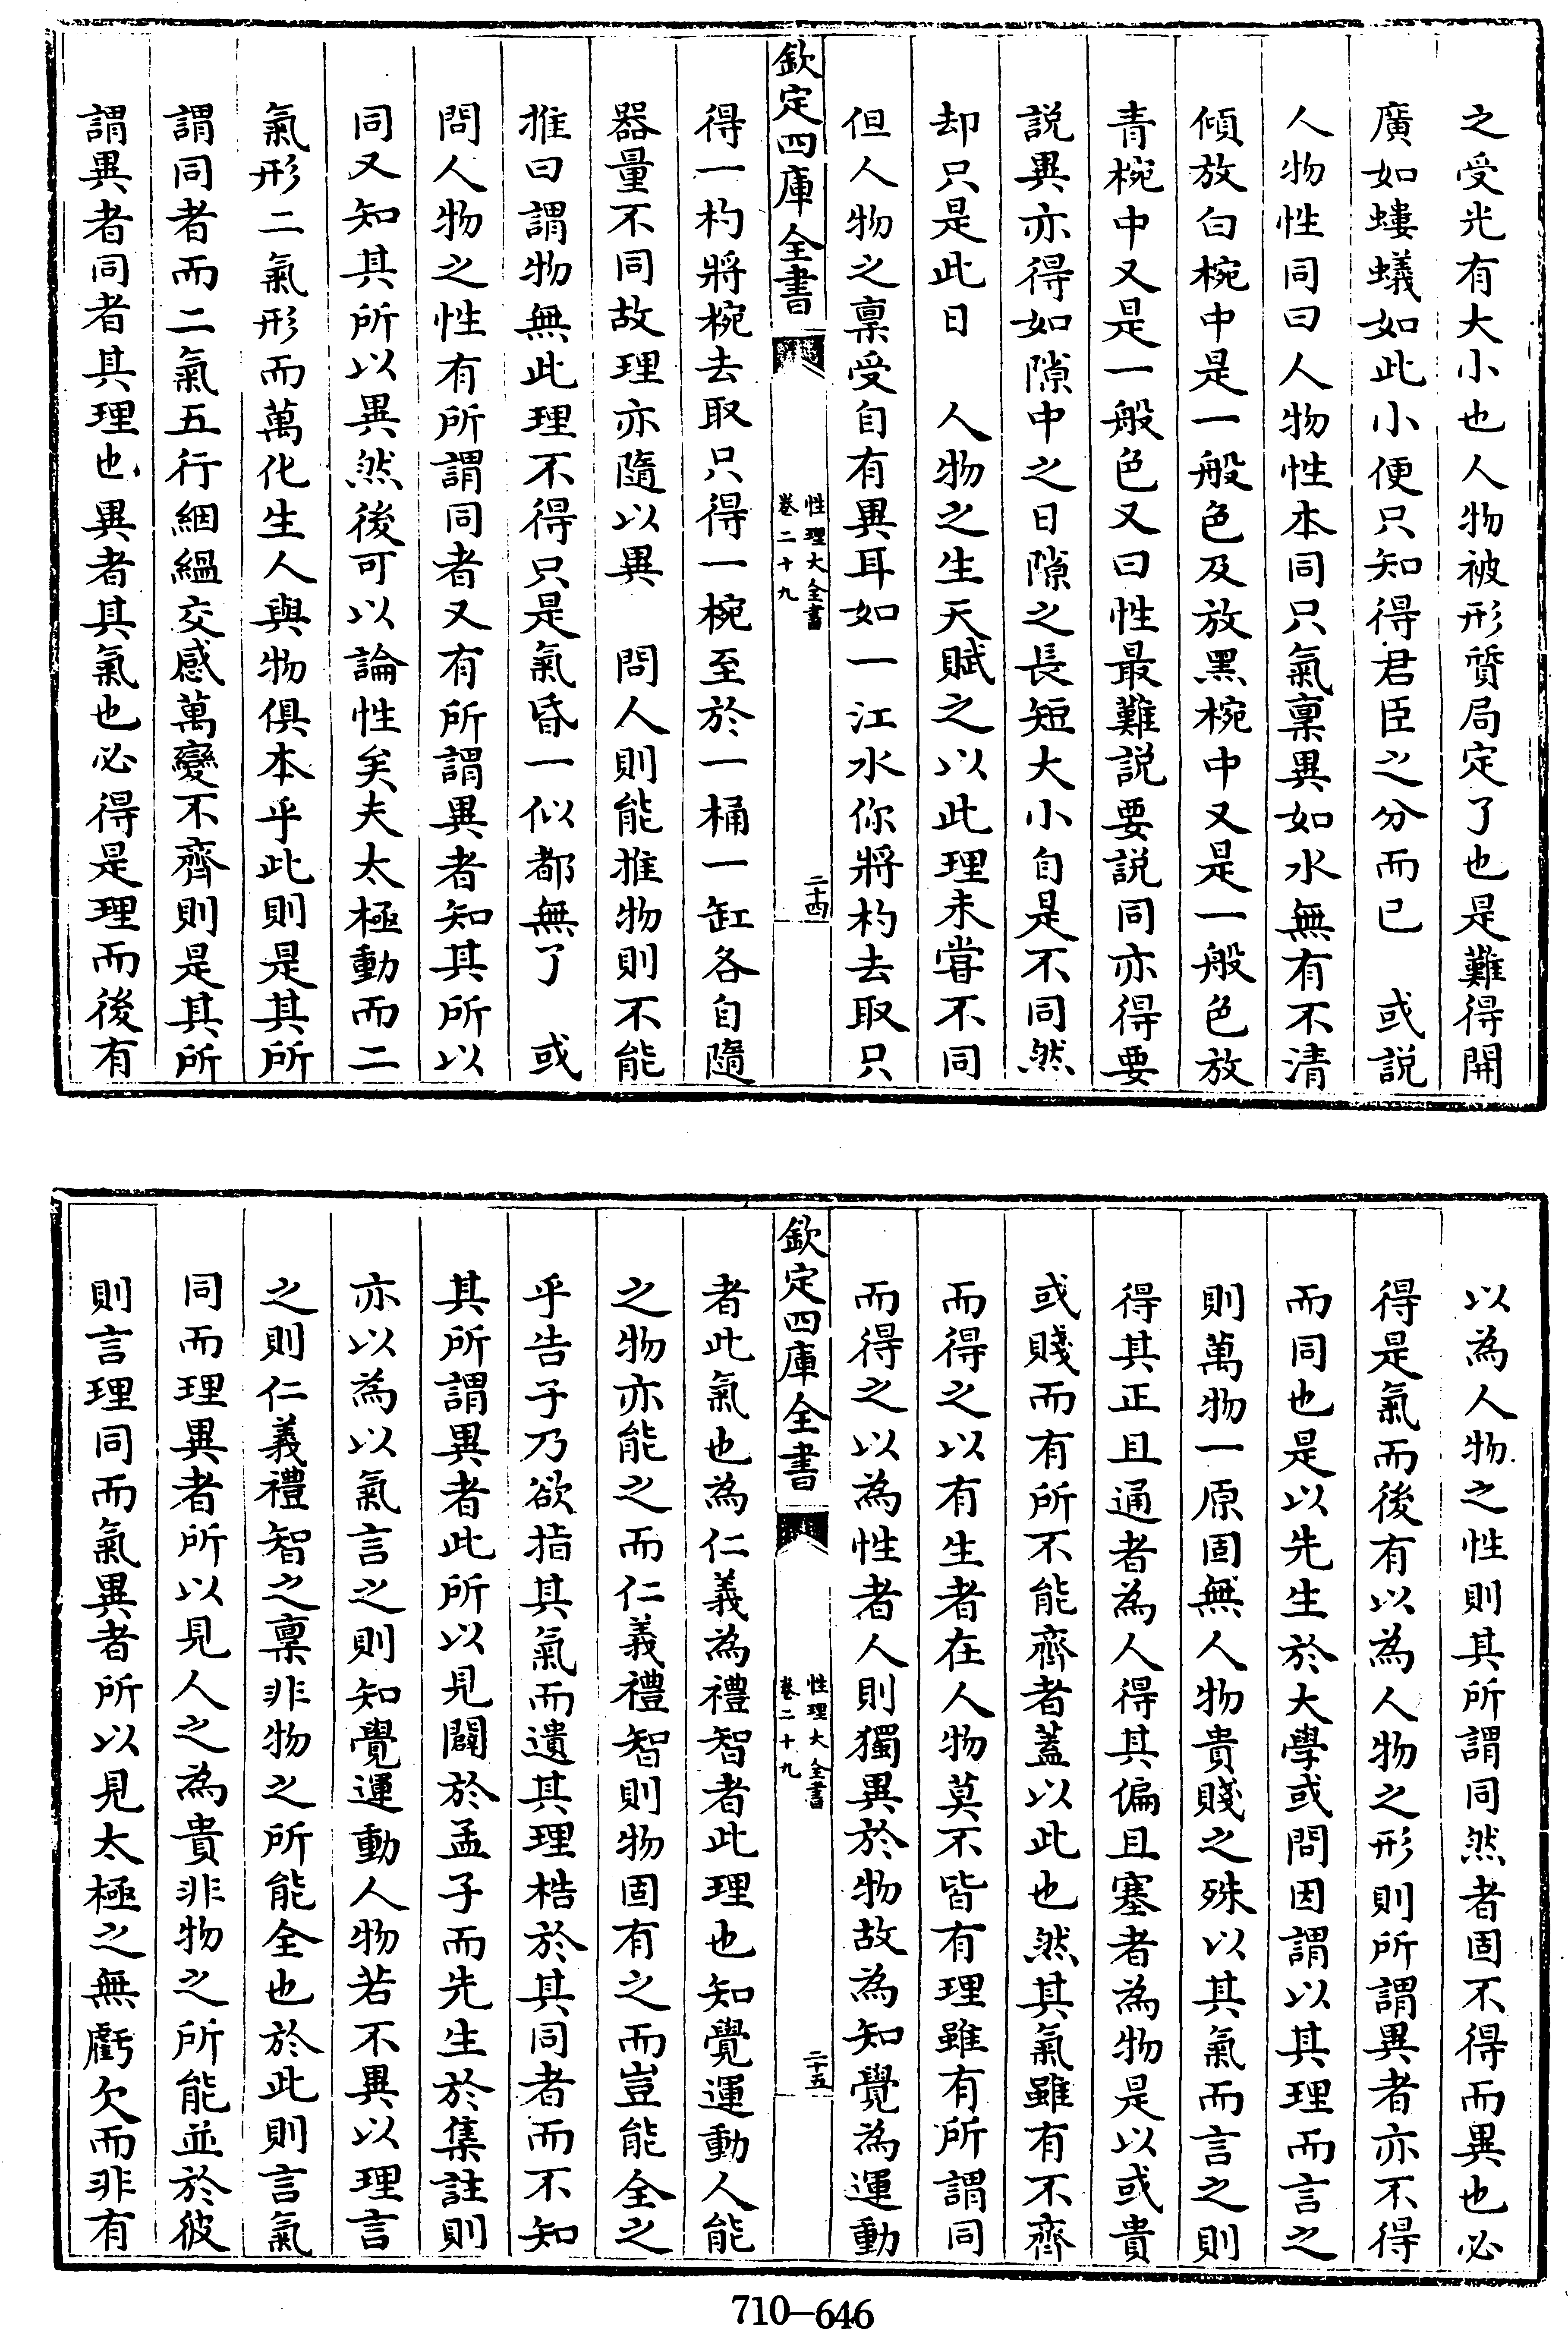 之受光有大小也人物被形質局定了也是難得開
廣如螻蟻如此小便只知得君臣之分而已　或説
人物性同曰人物性本同只氣稟異如水無有不清
傾放白椀中是一般色及放黑椀中又是一般色放
青椀中又是一般色又曰性最難説要説同亦得要
説異亦得如隙中之日隙之長短大小自是不同然
却只是此日　人物之生天賦之以此理未嘗不同
但人物之稟受自有異耳如一江水你將杓去取只
欽定四庫全書
性理大全書
卷二十九
二十四
得一杓將椀去取只得一椀至於一桶一缸各自隨
器量不同故理亦隨以異　問人則能推物則不能
推曰謂物無此理不得只是氣昏一似都無了　或
問人物之性有所謂同者又有所謂異者知其所以
同又知其所以異然後可以論性矣夫太極動而二
氣形二氣形而萬化生人與物俱本乎此則是其所
謂同者而二氣五行絪縕交感萬變不齊則是其所
謂異者同者其理也異者其氣也必得是理而後有
以為人物之性則其所謂同然者固不得而異也必
得是氣而後有以為人物之形則所謂異者亦不得
而同也是以先生於大學或問因謂以其理而言之
則萬物一原固無人物貴賤之殊以其氣而言之則
得其正且通者為人得其偏且塞者為物是以或貴
或賤而有所不能齊者蓋以此也然其氣雖有不齊
而得之以有生者在人物莫不皆有理雖有所謂同
而得之以為性者人則獨異於物故為知覺為運動
欽定四庫全書
性理大全書
卷二十九
二十五
者此氣也為仁義為禮智者此理也知覺運動人能
之物亦能之而仁義禮智則物固有之而豈能全之
乎告子乃欲指其氣而遺其理梏於其同者而不知
其所謂異者此所以見闢於孟子而先生於集註則
亦以為以氣言之則知覺運動人物若不異以理言
之則仁義禮智之稟非物之所能全也於此則言氣
同而理異者所以見人之為貴非物之所能並於彼
則言理同而氣異者所以見太極之無虧欠而非有
710—646